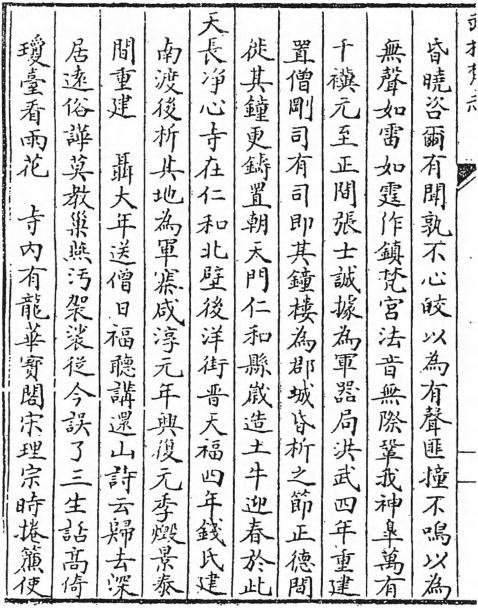 武林梵志
昏曉咨爾有聞孰不心皎以為有聲匪撞不鳴以為
無聲如雷如霆作鎮梵宮法音無際鞏我神臯萬有
千禩元至正間張士誠據為軍器局洪武四年重建
置僧剛司有司即其鐘樓為郡城昏析之節正德間
徙其鐘更鑄置朝天門仁和縣歲造土牛迎春於此
天長净心寺在仁和北壁後洋街晋天福四年錢氏建
南渡後析其地為軍寨咸淳元年興復元季燬景泰
間重建　聶大年送僧日福聽講還山詩云歸去深
居遠俗譁莫教巢燕汚袈裟從今誤了三生話高倚
瓊臺看雨花　寺內有龍華寶閣宋理宗時捲簾使